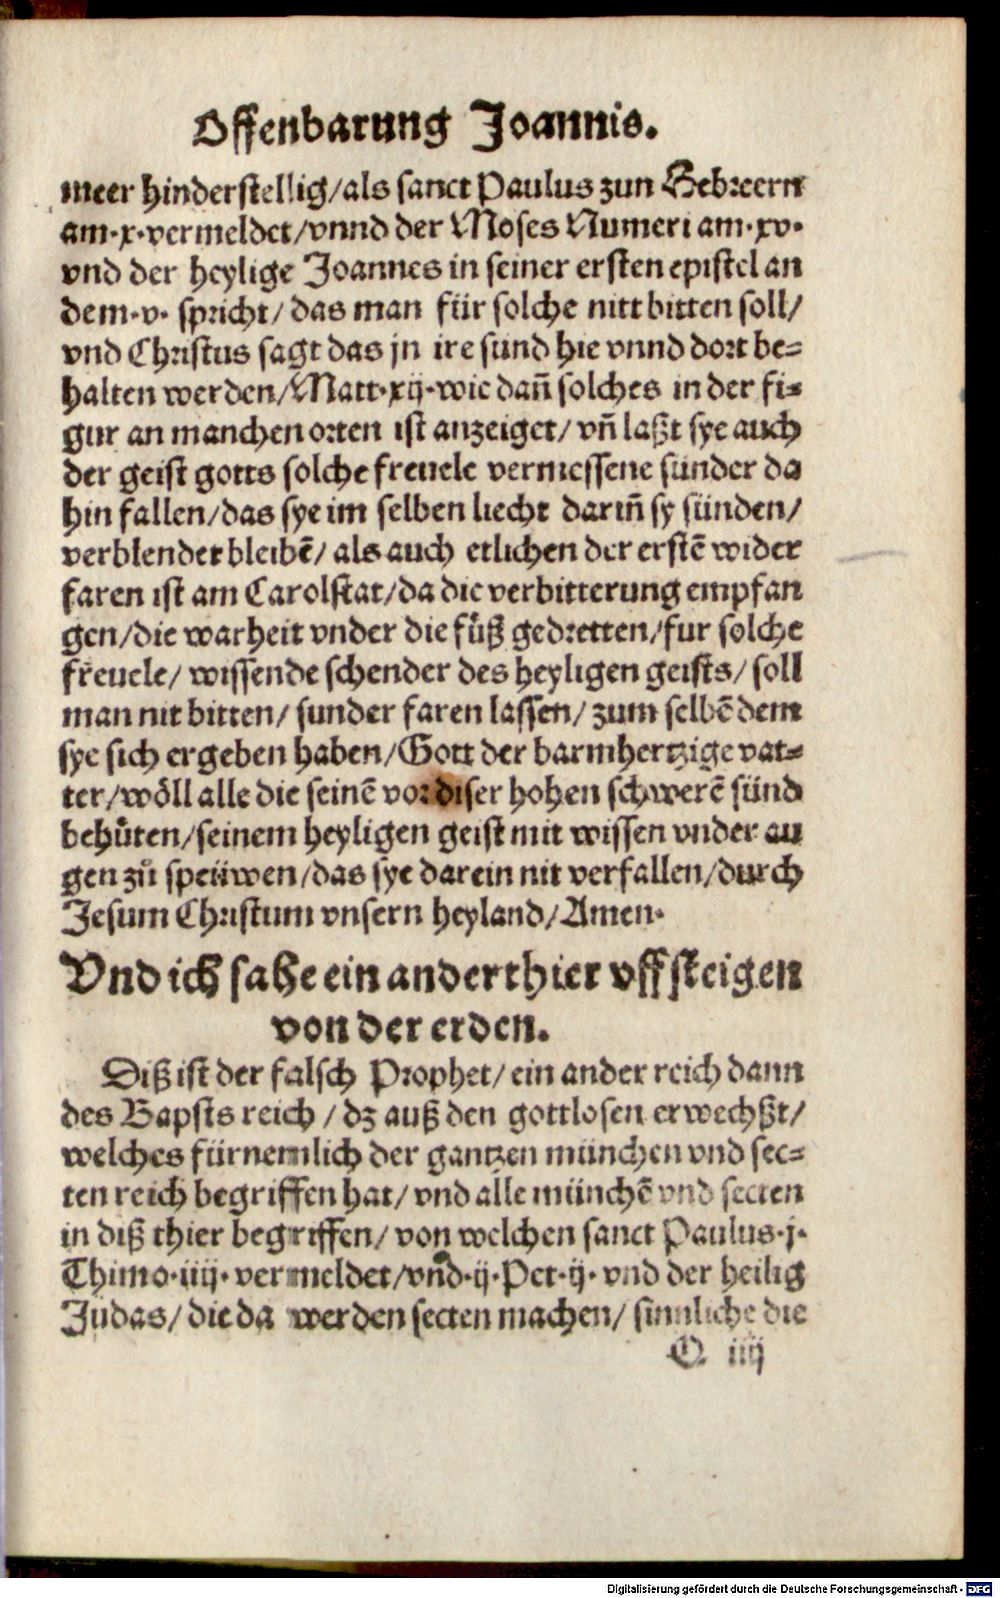 Offenbarung Joannis.
meer hinderstellig/als sanct Paulus zun Hebreern
am·x·vermeldet/vnnd der Moses Numeri am·xv·
vnd der heylige Joannes in seiner ersten epistel an
dem·v· spricht/das man für solche nitt bitten soll/
vnd Christus sagt das jn ire sünd hie vnnd dort be=
halten werden/Matt·xij·wie dañ solches in der fi=
gur an manchen orten ist anzeiget/vñ laßt sye auch
der geist gotts solche freuele vermessene sünder da
hin fallen/das sye im selben liecht dariñ sy sünden/
verblendet bleibē/als auch etlichen der erstē wider
faren ist am Carolstat/da die verbitterung empfan
gen/die warheit vnder die fůß gedretten/fur solche
freuele/wissende schender des heyligen geists/soll
man nit bitten/sunder faren lassen/zum selbē dem
sye sich ergeben haben/Gott der barmhertzige vat=
ter/wöll alle die seinē vor diser hohen schwerē sünd
behůten/seinem heyligen geist mit wissen vnder au
gen zů speüwen/das sye darein nit verfallen/durch
Jesum Christum vnsern heyland/Amen·
Vnd ich sahe ein ander thier vff steigen
von der erden.
Diß ist der falsch Prophet/ein ander reich dann
des Bapsts reich/dz auß den gottlosen erwechßt/
welches fürnemlich der gantzen münchen vnd sec=
ten reich begriffen hat/vnd alle münchē vnd secten
in diß thier begriffen/von welchen sanct Paulus·j·
Thimo·iiij·vermeldet/vnd·ij·Pet·ij·vnd der heilig
Judas/die da werden secten machen/sinnliche die
O iiij
Digitalisierung gefördert durch die Deutsche Forschungsgemeinschaft - DFG